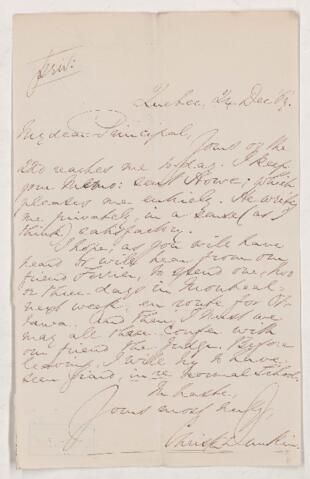 Priv:
Quebec, 24 Dec 69.
My dear Principal,
Yours of the
22d reaches me to-day. I keep
your Memo: sent Howe; which
pleases me entirely. He writes
me privately, in a sense (as I
think) satisfactory.
I hope, as you will have
heard or will hear from our
friend to spend one, two
or three days in Montreal
next week, en route for Ot-
tawa. And then I trust we
may all three confer with
our friend the Judge. Before
leaving, I will try to have
seen Giard, in re Normal School.
In haste,
Yours most truly,
Christ Dunkin.